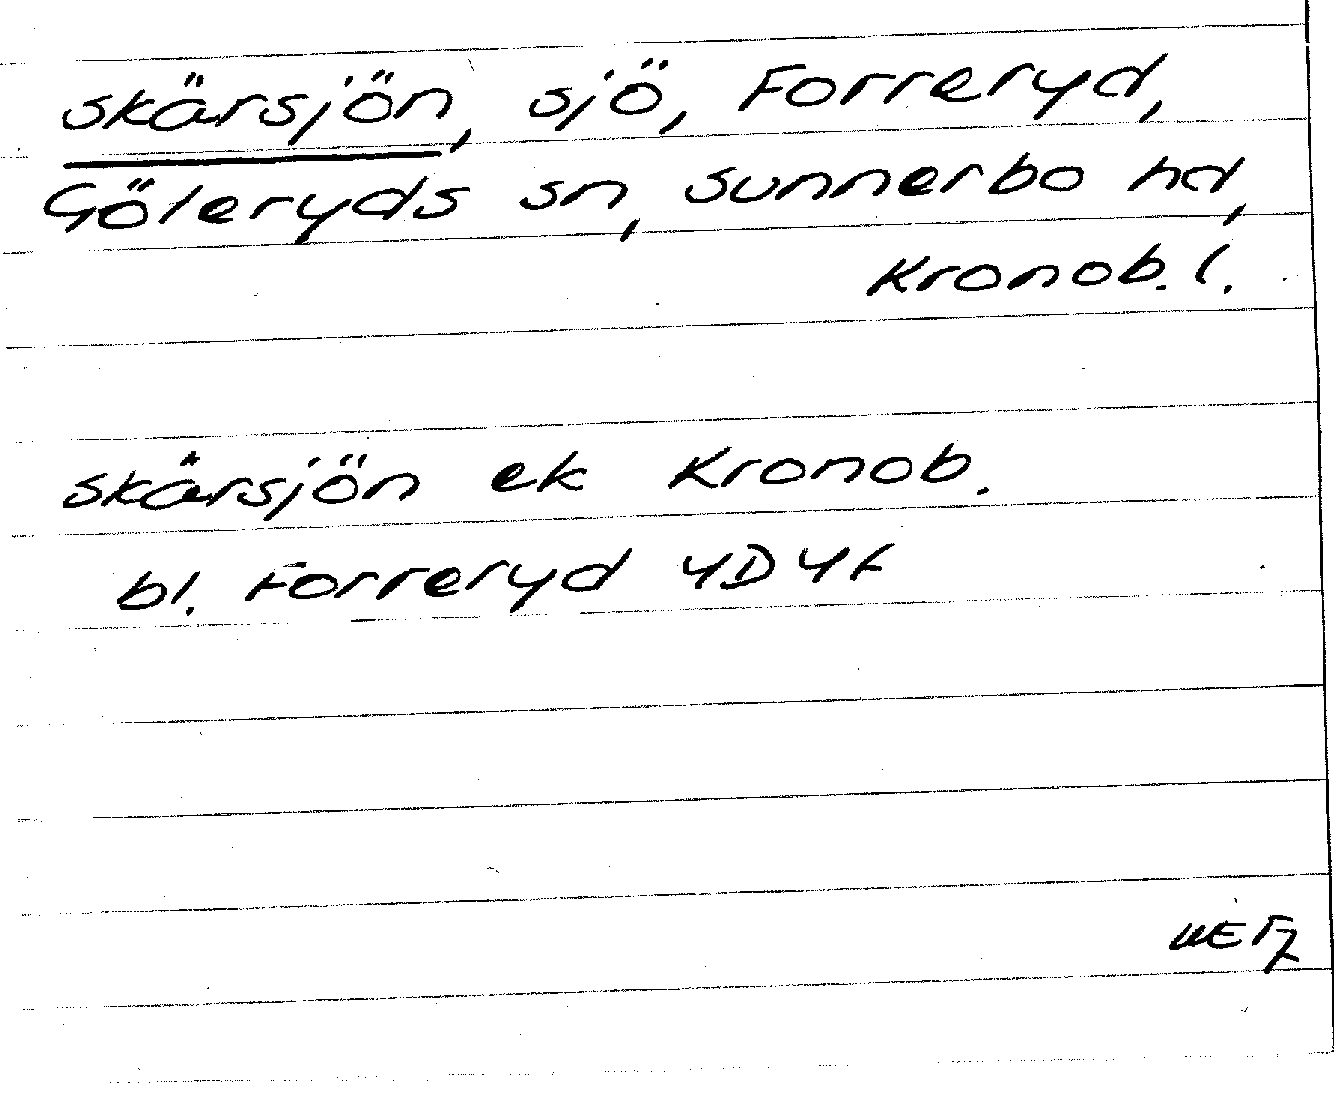 skärsjön, sjö, Forreryd,
Göleryds sn, sunnerbo hd,
Kronob. l.
skärsjön ek Kronob.
bl. Forreryd 4D4f